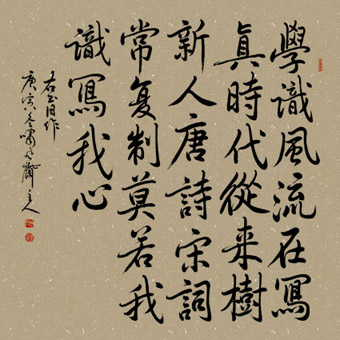 學識風流在寫
真時代從來樹
新人唐詩宋詞
常复制莫若我
識寫我心
右玉自作
庚寅冬嘯風齋主人